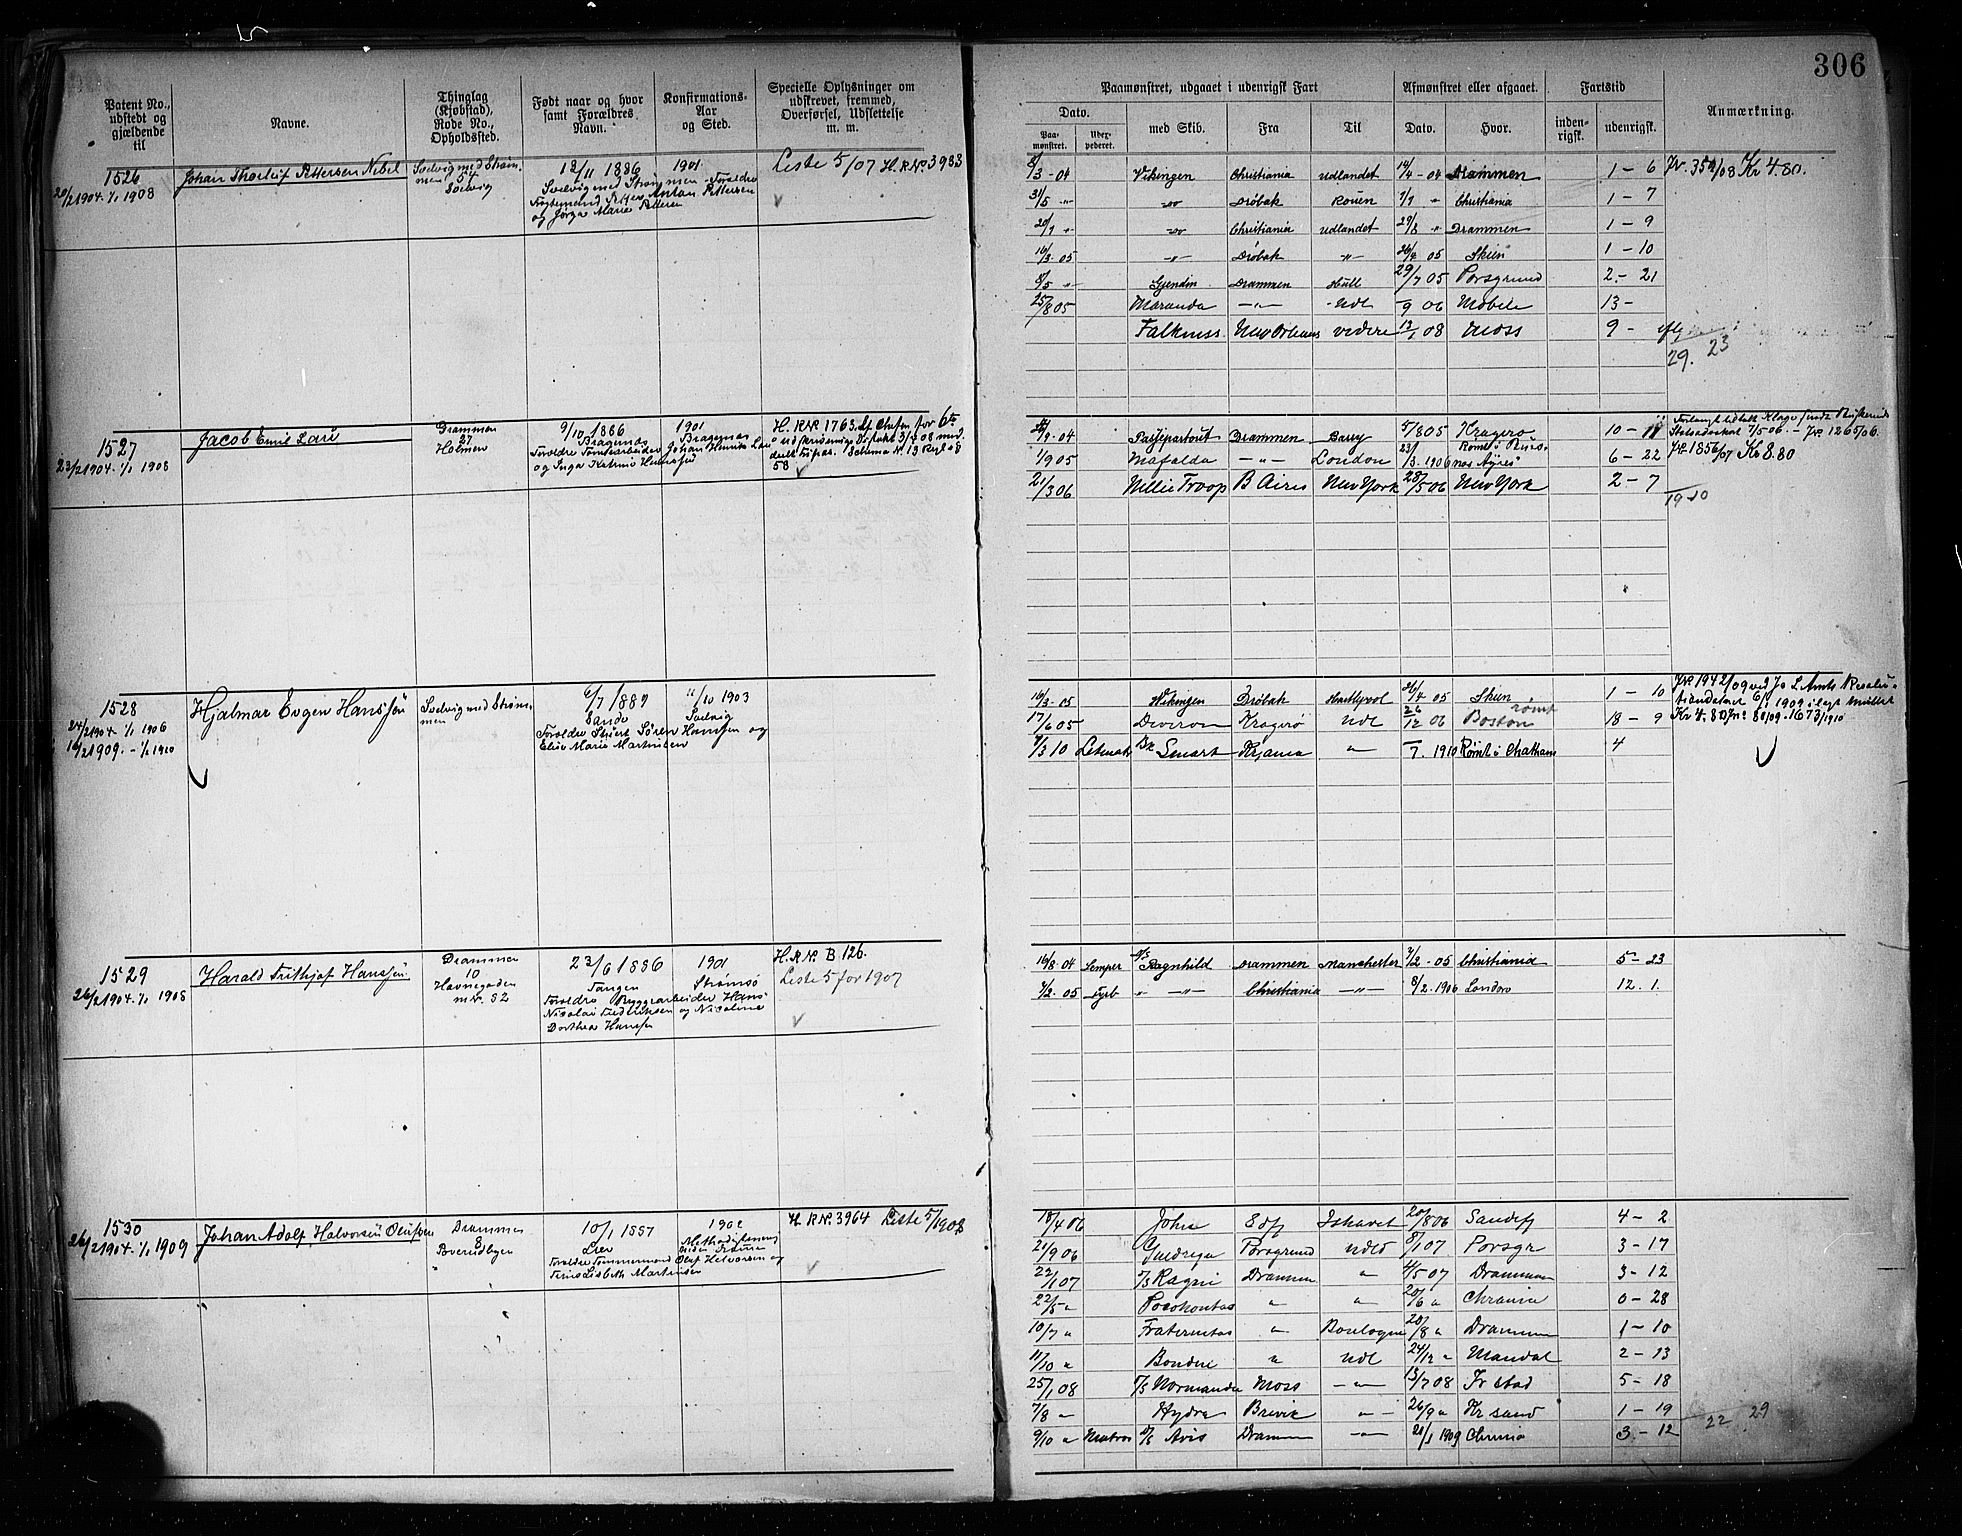 306
Patent No., udstedt og gjældende til
Navne.
Thinglag (Kjøbstad), Rode No., Opholdssted.
Født naar og hvor samt Forældres Navn.
Konfirmations-Aar og Sted.
Specielle Oplysninger om udskrevet, fremmed, Overførsel, Udslettelse m. m.
Paamønstret, udgaaet i udenrigsk Fart
Dato.
Paa-mønstret.
med Skib.
Fra
Til
Afmønstret eller afgaaet.
Dato.
Hvor.
Fartstid
inden-rigsk.
udenrigsk.
Anmærkning.
1526
20/2 1904. 1/1 1908
Johan Thorleif Pettersen Nebel
Svelvig med Strøm-
men 54
Svelvig
12/11 1886
Svelvig med Strømmen - Forældre
og Jørga Marie Pettersen
1901
Liste 5/07 H. R. Nº 3983
8/3 - 04 Vikingen Christiania udlandet 14/4 - 04 Drammen 1 - 6
31/5 " Drøbak Rouen 7/7 " Christiania 1 - 7
20/7 " Christiania udlandet 29/8 " Drammen 1 - 9
16/3 - 05 - " - Drøbak - " - 26/4 05 Skien 1 - 10
8/5 " Gjendin Drammen Hull 29/7 05 Porsgrund 2 - 21
25/8 05 Maranda - " - Udl - 9 06 Mobile 13 -
Falkness New Orleans videre 13/1 08 Moss 9 -
Kr 4.80.
29. 23
1527
23/2 1904. 1/1 1908
Jacob Emil Lau
Drammen
27
Holmen
9/10 1886
Bragernes
Forældre Tomtearbeider Johan Henrik Lau
og Inga Katrine Hanssen
1901
Bragernes
H. R Nº 1763.
58
9 - 04 Passepartout Drammen Barry 5/8 05 Kragerø 10 - 11
1/9 05 Mafalda - " - London 23/3 1906 Rømt i Bue-
nos Ayres 6 - 22
21/3 06 Nellie Troop B Aires New York 28/5 06 New York 2 - 7
Kr 8.80
19 - 10
1528
24/2 1904 1/1 1906
16/2 1909. - 1/1 1910
Hjalmar Evgen Hanssen
Svelvig med Strøm-
men
6/7 1887
Sande
Forældre Skibst Sören Hanssen og
Elise Marie Martinsen
11/10 1903
Svelvig
16/3 - 05 Vikingen Drøbak Hartlepool 26/4 05 Skien 1 - 10
17/6 05 Deveron Kragerø Udl 26/12 06 Boston rømt 18 - 9
9/3 10 Letmat Bk Smart Krjania " 7. 1910 Rømt i Chatham 4
1529
26/2 1904. 1/1 1908
Harald Frithjof Hanssen
Drammen
10
Havnegaden
m Nr. 52
23/6 1886
Tangen
Forældre Bryggearbeider Hans
Nicolai Fredriksen og Nicoline
Dorthea Hanssen
1901
Strømsø
H. R Nº. B 126.
Liste 5 for 1907
16/8 04 Semper D/S Ragnhild Drammen Manchester 7/2 - 05 Christiania 5 - 23
7/2. 05 Fyrb " - " - Christiania - " - 8/2. 1906 London 12. 1.
1530
26/2 1904. 1/1 1909
Johan Adolf Halvorsen Olufsen
Drammen
8
10/1 1887
Lier
Forældre Tømmermand Oluf Halvorsen og
Lisbeth Martinsen
1902
H. R Nº. 3964 Liste 5/1908
18/4 06 John Sdfj Ishavet 20/8 06 Sandefj 4 - 2
21/9 06 Porsgrund Udld 8/1 07 Porsgr 3 - 17
22/1 07 D/S Ragni Drammen " 4/5 07 Drammen 3 - 12
22/5 " Pocohontas " " 20/6 " Chrania 0 - 28
10/7 " Fraternitas " Boulogne 20/8 " Drammen 1 - 10
11/10 " Bondere " Udl 24/12 " Mandal 2 - 13
25/1 08 D/S Normandie Moss - " - 13/7 08 Fr stad 5 - 18
7/8 " Hydra Brevik " - 26/9 " Kr sand 1 - 19
9/10 " Matros D/S Avis Drammen - " - 21/1 1909 Chrania 3 - 12
22 29